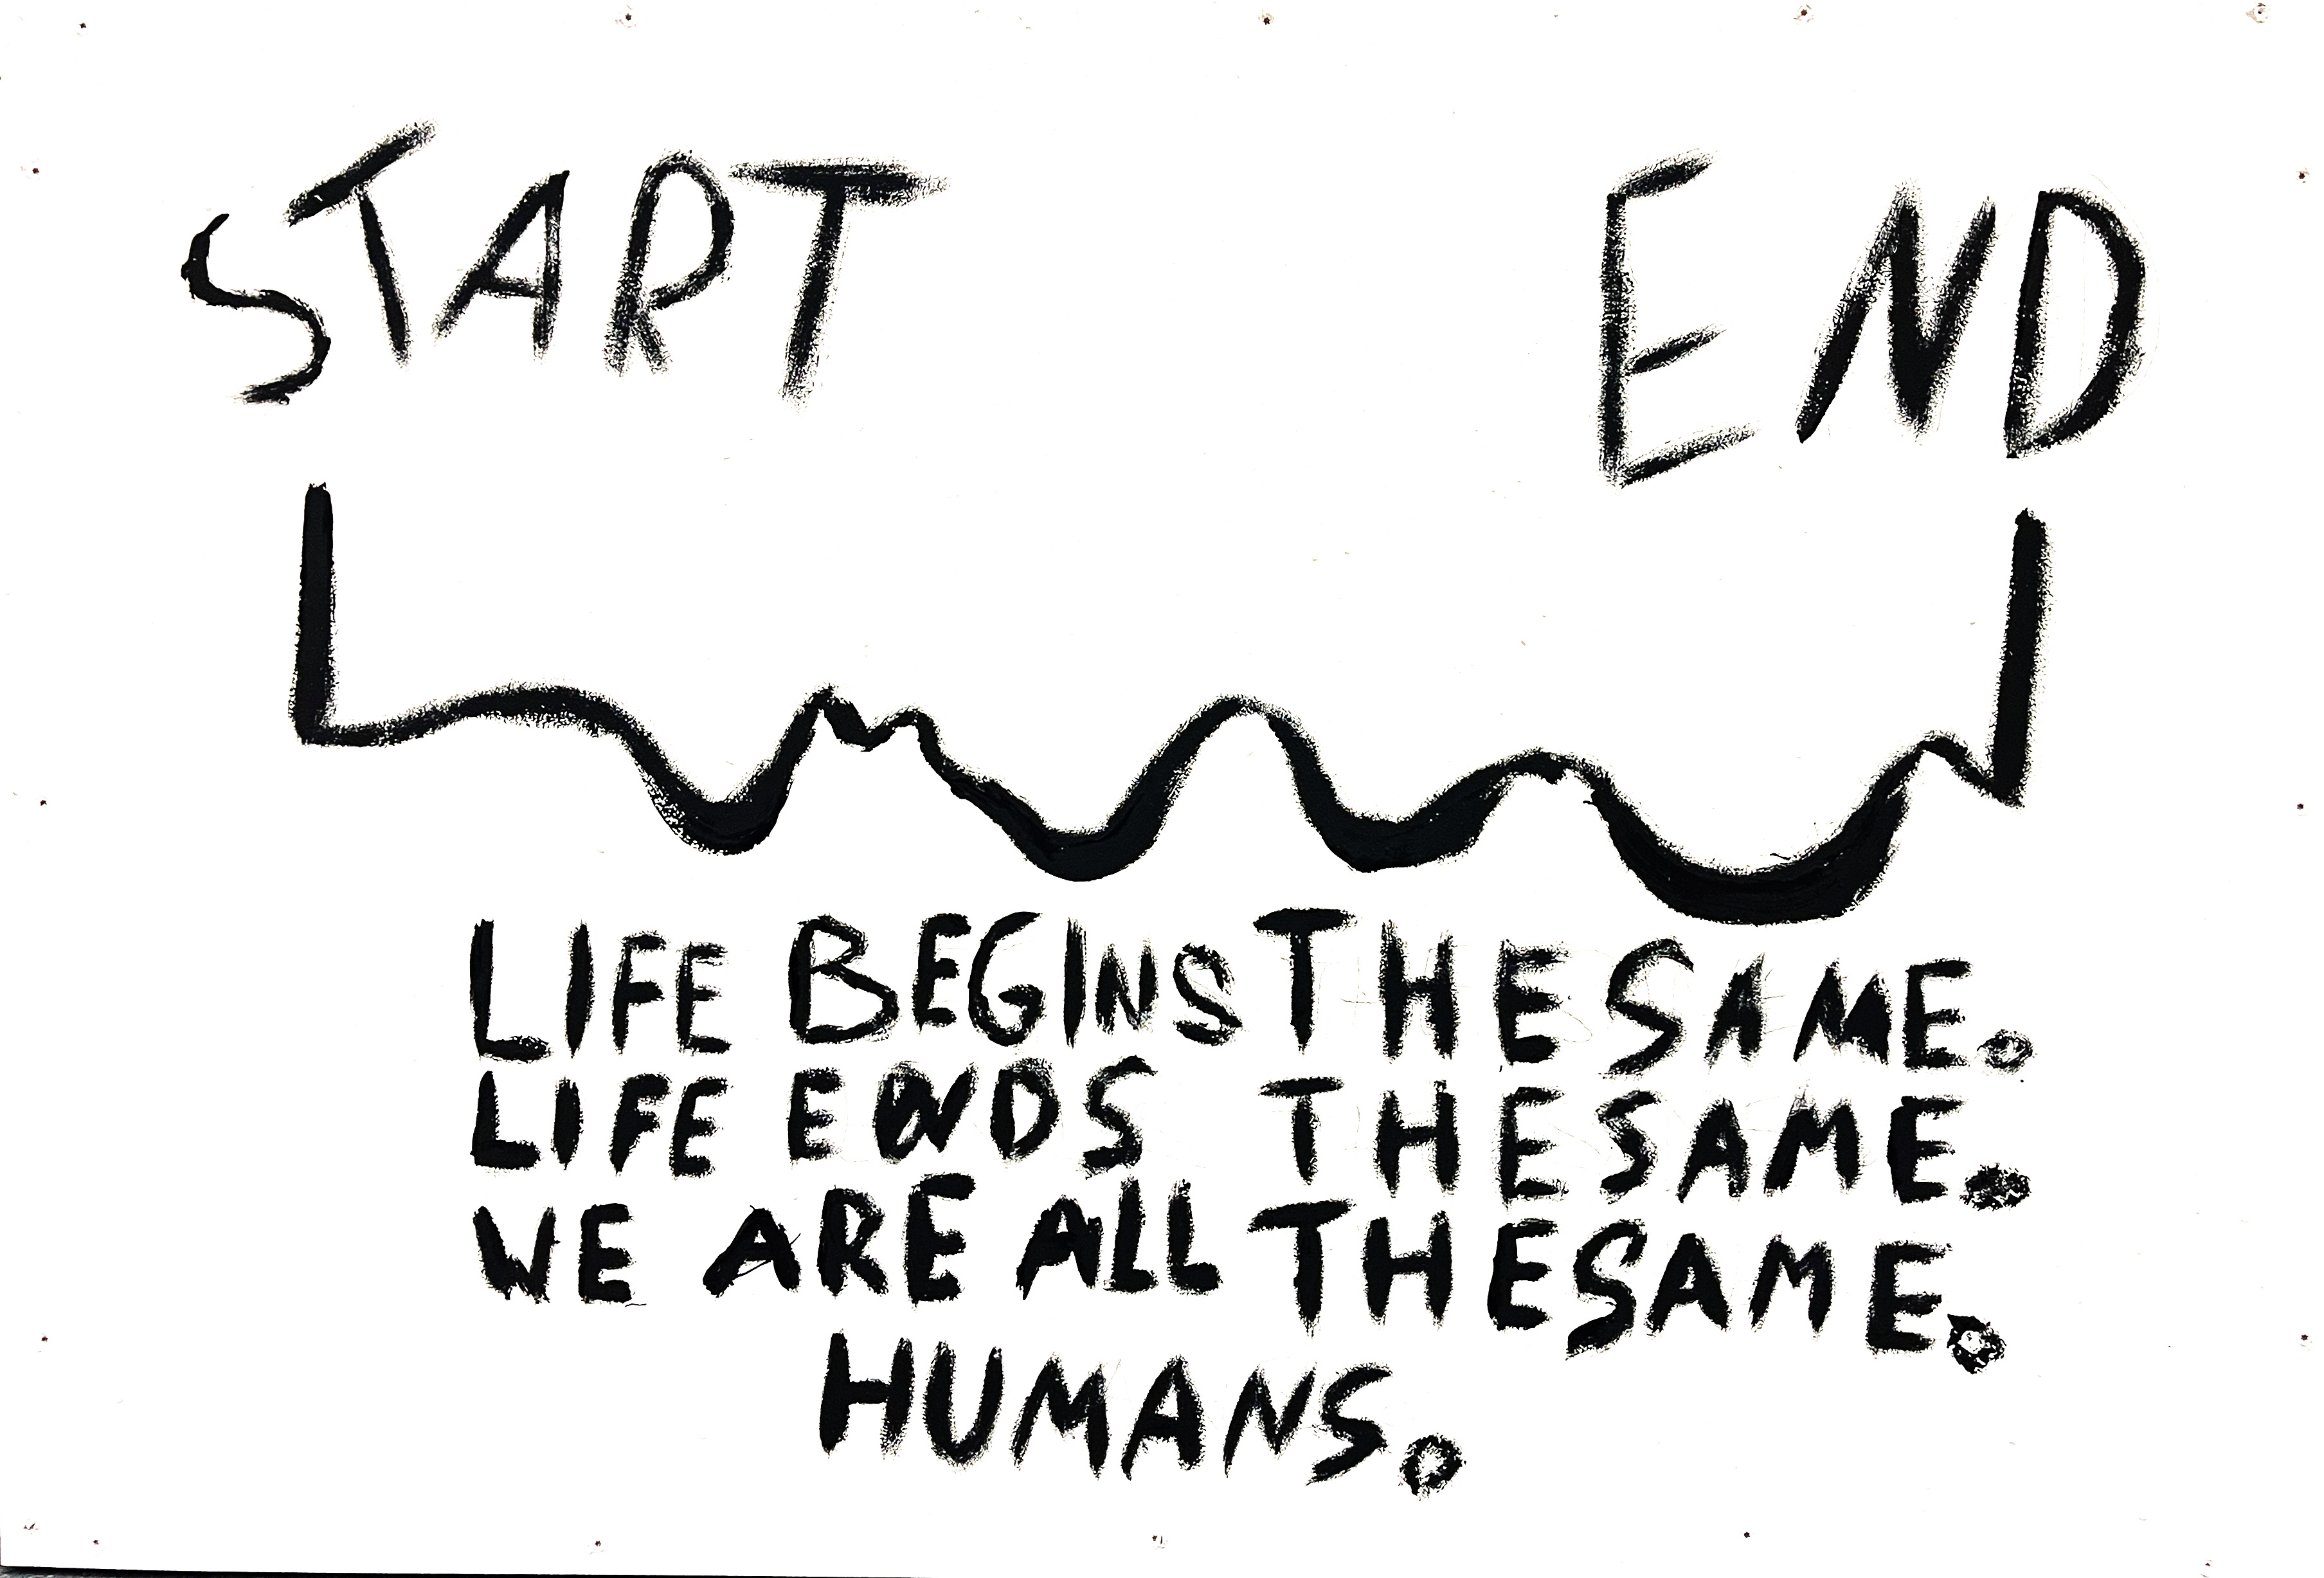 START END
LIFE BEGINS THE SAME.
LIFE ENDS THE SAME.
WE ARE ALL THE SAME.
HUMANS.